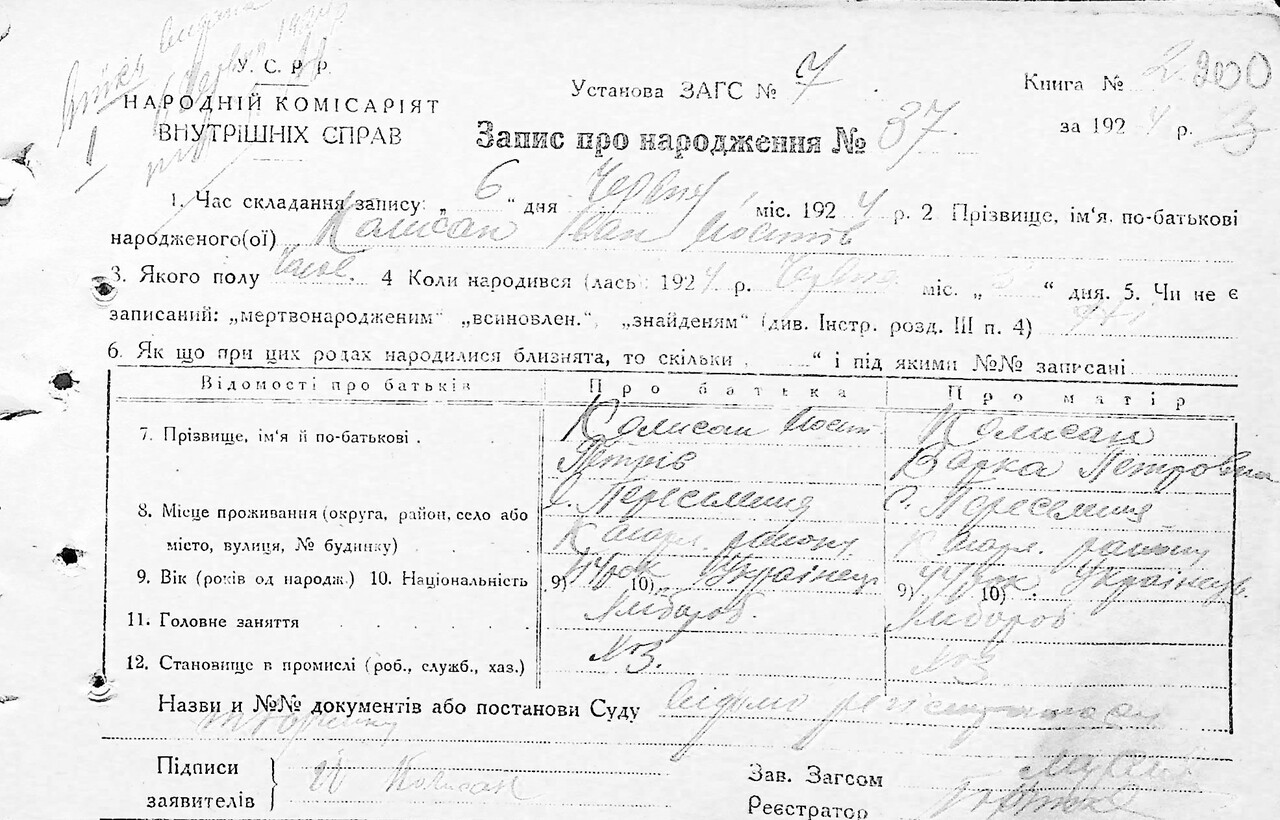 У. С. Р. Р.
НАРОДНІЙ КОМІСАРІЯТ
ВНУТРІШНІХ СПРАВ
Установа ЗАГС № 7
Книга №
за 1924 р.
Запис про народження № 37.
1. Час складання запису: „ 6 “ дня Червня міс. 1924 р. 2 Прізвище, ім'я, по-батькові
народженого(ої) Колисан Іван Йосипів
3. Якого полу Чолов. 4 Коли народився (лась) 1924 р. Червня міс. „ “ дня. 5. Чи не є
записаний: „мертвонародженим“ „всиновлен.“, „знайденям“ (див. Інстр. розд. III п. 4) ні
6. Як що при цих родах народилися близнята, то скільки “ і під якими №№ записані
Відомості про батьків Про батька Про матір
7. Прізвище, ім'я й по-батькові . Колисан Йосип Колисан
Петрів Варка Петровна
8. Місце проживання (округа, район, село або с. Переселиця с. Переселиця
місто, вулиця, № будинку) району району
9. Вік (років од народж.) 10. Національність 9) рок 10) Українець 9) 44 рок 10) Українець
11. Головне заняття Хлібороб. Хлібороб
12. Становище в промислі (роб., служб., хаз.)
Назви и №№ документів або постанови Суду відомо
Підписи
заявителів Й Колисан
Зав. Загсом
Реєстратор